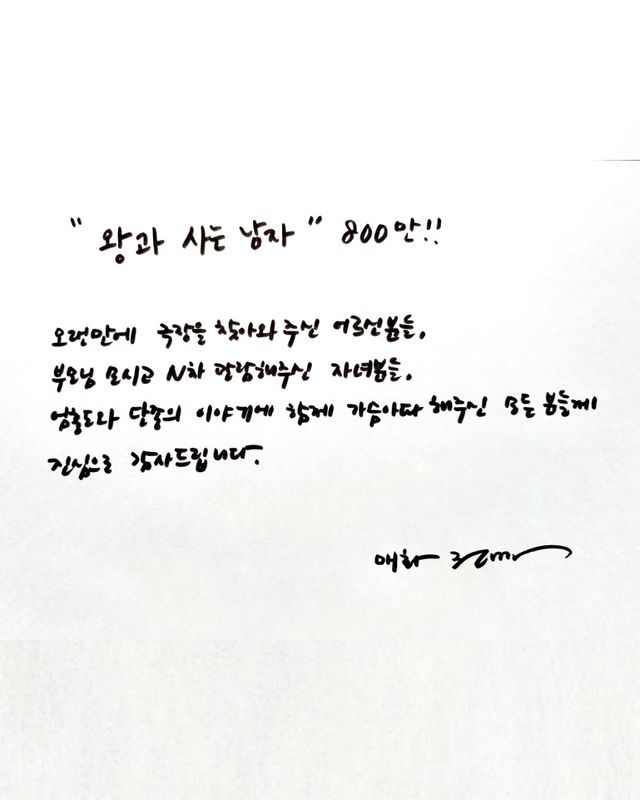 "왕과 사는 남자" 800만!!
오랜만에 극장을 찾아와 주신 어르신분들,
부모님 모시고 N차 관람해주신 자녀분들,
엄흥도와 단종의 이야기에 함께 가슴아파 해주신 모든 분들께
진심으로 감사드립니다.
매화